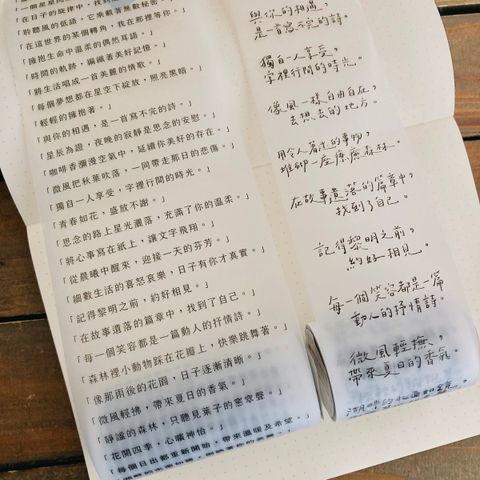 「一個星星
「在日子的旋律中，找
「聆聽風的低語，它承載著無數秘密。」
「在這世界的某個轉角，我在那裡等你。」
「擁抱生命中溫柔的偶然耳語。」
「時間的軌跡，編織著美好記憶。」
「將生活唱成一首美麗的情歌。」
「每個夢想都在星空下綻放，照亮黑暗。」
「輕輕的擁抱著。」
「與你的相遇，是一首寫不完的詩。」
「星辰為證，夜晚的寂靜是思念的安慰。」
「咖啡香瀰漫空氣中，延續你美好的存在。」
「微風把秋葉吹落，一同帶走那日的悲傷。」
「獨自一人享受，字裡行間的時光。」
「青春如花，盛放不謝。」
「思念的路上星光灑落，充滿了你的溫柔。」
「將心事寫在紙上，讓文字飛翔。」
「從晨曦中醒來，迎接一天的芬芳。」
「細數生活的喜怒哀樂，日子有你才真實。」
「記得黎明之前，約好相見。」
「在故事遺落的篇章中，找到了自己。」
「每一個笑容都是一篇動人的抒情詩。」
「森林裡小動物踩在花瓣上，快樂跳舞著。」
「像那雨後的花園，日子逐漸清晰。」
「微風輕拂，帶來夏日的香氣。」
「靜謐的森林，只聽見葉子的窸窣聲。」
「花開四季，心曠神怡。」
「每個日出都重新開始，帶來溫暖及希望。」
與你的相遇，
是一首寫不完的詩。
獨自一人享受，
字裡行間的時光。
像風一樣自由自在，
去想去的地方。
用令人著迷的事物，
堆砌一座療癒森林。
在故事遺落的篇章中，
找到了自己。
記得黎明之前，
約好相見。
每一個笑容都是一篇
動人的抒情詩。
微風輕撫，
帶來夏日的香氣。